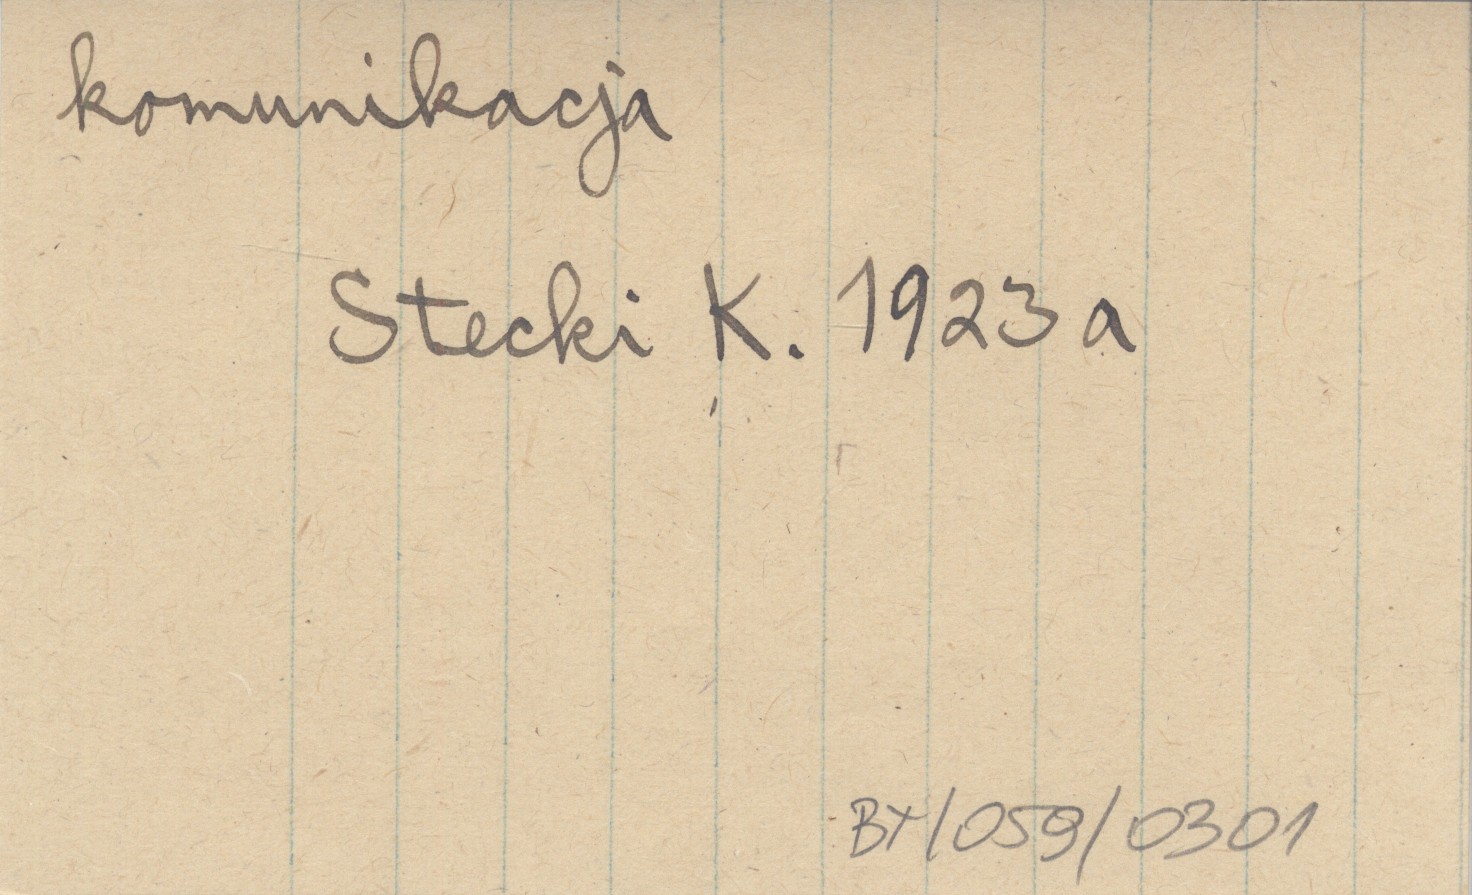 komunikacja
Stecki K. 1923 a
BT/059/0301